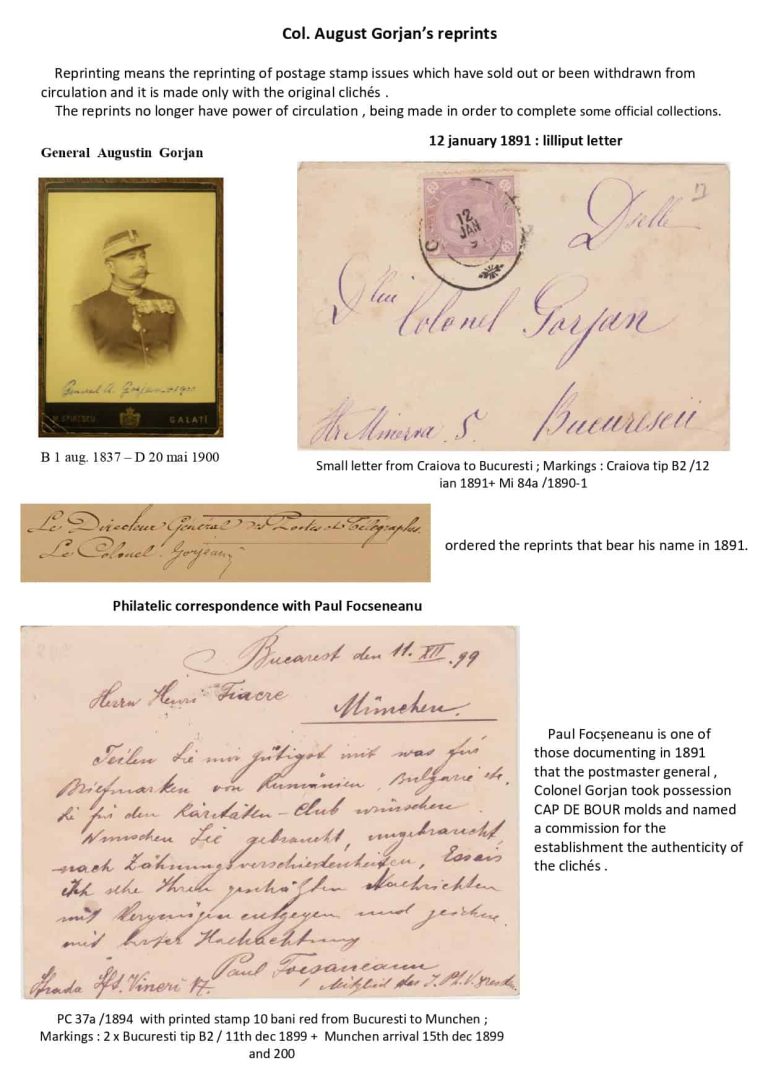 Col. August Gorjan's reprints
Reprinting means the reprinting of postage stamp issues which have sold out or been withdrawn from
circulation and it is made only with the original clichés .
The reprints no longer have power of circulation , being made in order to complete some official collections.
General Augustin Gorjan
12 january 1891 : lilliput letter
12
JAN
Dselle
Colonel Gorjan
Str Minerva 5.
Bucurescii
General A. Gorjan
GALATĬ
B 1 aug. 1837 – D 20 mai 1900
Small letter from Craiova to Bucuresti ; Markings : Craiova tip B2 /12
ian 1891+ Mi 84a /1890-1
Le Directeur Général des Postes et Télégraphes
Le Colonel Gorjean
ordered the reprints that bear his name in 1891.
Philatelic correspondence with Paul Focseneanu
Bucarest den 11. XII. 99
Herrn Henri Fiacre
München.
Teilen Sie mir gütigst mit was für
Briefmarken von Rumänien, Bulgarie etc.
Sie für den Raritäten-Club wünschen.
Wünschen Sie gebraucht, ungebraucht
nach Zähnungsverschiedenheiten, Essais
Ich sehe Ihren geschäftlen Nachrichten
mit Vergnügen entgegen und zeichne
mit Hochachtung
Paul Focşaneanu
Strada Sft. Vineri 17.
Mitglied des I. Ph. V. Dresden
Paul Focșeneanu is one of
those documenting in 1891
that the postmaster general ,
Colonel Gorjan took possession
CAP DE BOUR molds and named
a commission for the
establishment the authenticity of
the clichés .
PC 37a /1894 with printed stamp 10 bani red from Bucuresti to Munchen ;
Markings : 2 x Bucuresti tip B2 / 11th dec 1899 + Munchen arrival 15th dec 1899
and 200